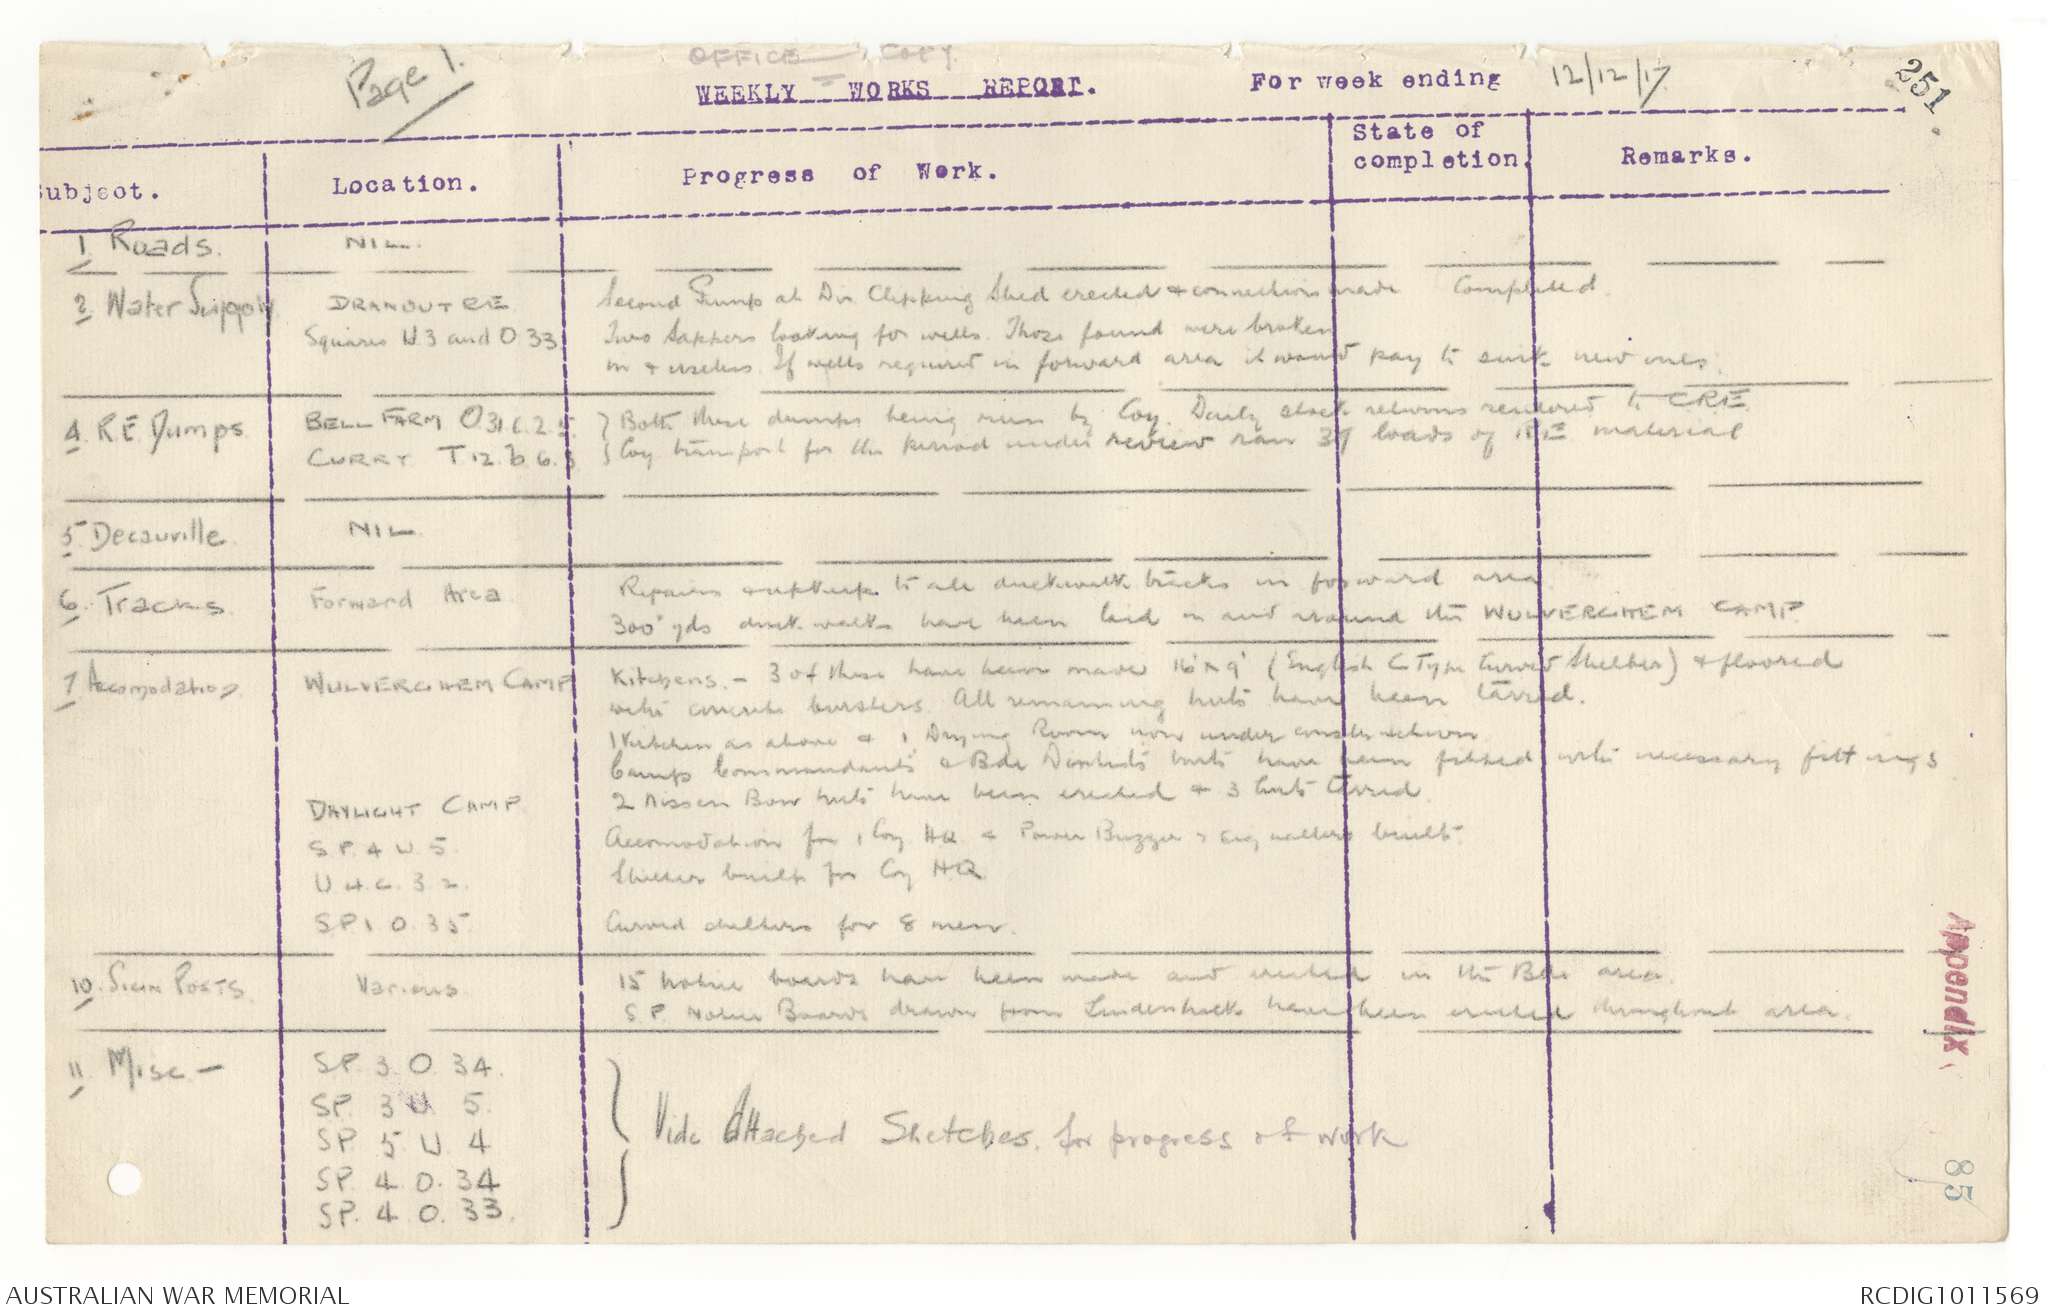 Page 1.
OFFICE COPY.
WEEKLY WORKS REPORT. For week ending 12/12/17
251
Subject. Location. Progress of Work. State of completion. Remarks.
1. Roads. NIL.
2. Water Supply DRANOUTRE Second Pump at Div Clipping Shed erected & connections made Completed.
Squares U.3 and O.33 Two Sappers looking for wells. Those found were broken
in & useless. If wells required in forward area it would pay to sink new ones.
4. R.E. Dumps BELL FARM O.31.c.2.5. } Both these dumps being run by Coy. Daily stock returns rendered to CRE.
CURRY T.12.b.6.3 } Coy transport for the period under review ran 37 loads of RE material
5. Decauville. NIL.
6. Tracks. Forward Area Repairs & upkeep to all duckwalk tracks in forward area
300 yds duck walks have been laid in and around the WULVERGHEM CAMP.
7 Accomodation WULVERGHEM CAMP Kitchens. - 3 of these have been made 16' x 9' (English C Type Curved Shelter) & floored
with concrete bursters. All remaining huts have been tarred.
1 Kitchen as above & 1 Drying Room now under construction
Camp Commandants & Bde Dentists huts have been fitted with necessary fittings
DAYLIGHT CAMP 2 Nissen Bow huts have been erected & 3 huts tarred.
S.P. 4 U. 5. Accomodation for 1 Coy HQ & Power Buzzer & signallers built.
U.4.c.3.2. Shelter built for Coy HQ
SP1. O.35. Curved shelters for 8 men.
10. SIGN POSTS. Various 15 notice boards have been made and erected in the Bde area.
S.P. Notice Boards drawn from Lindenhoek have been erected throughout area.
11. Misc - SP. 3. O. 34.
SP. 3 U. 5.
SP. 5. U. 4
SP. 4. O. 34
SP. 4. O. 33.
} Vide Attached Sketches. for progress of work
Appendix
85
AUSTRALIAN WAR MEMORIAL RCDIG1011569